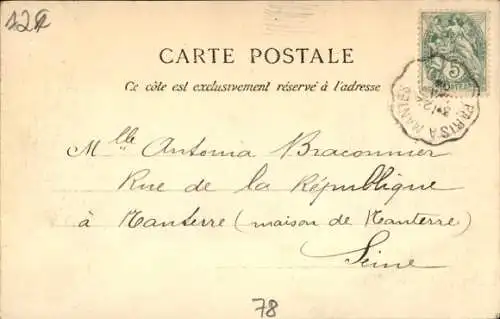 CARTE POSTALE
Ce côte est exclusivement réservé à l'adresse
5
PARIS A MANTES
Mlle Antonia Braconnier
Rue de la République
à Nanterre (maison de Nanterre)
Seine
78